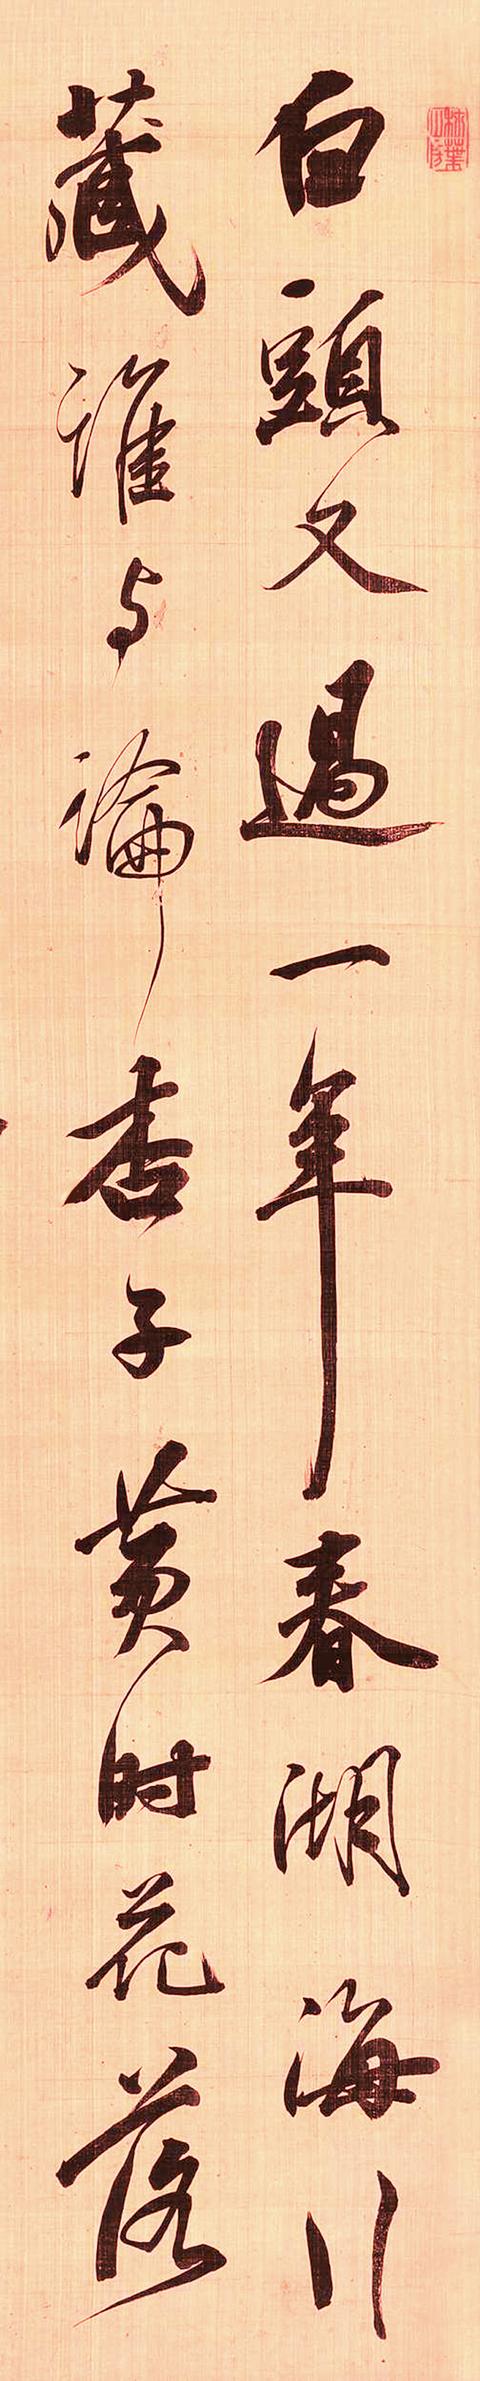 白頭又過一年春湖海行
藏誰与論杏子黄时花落